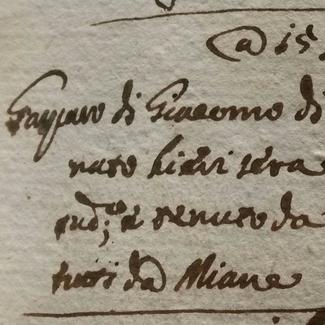 @ 15
Gasparo di Giacomo di
nato hieri sera
sud:to è tenuto da
tutti da Miane